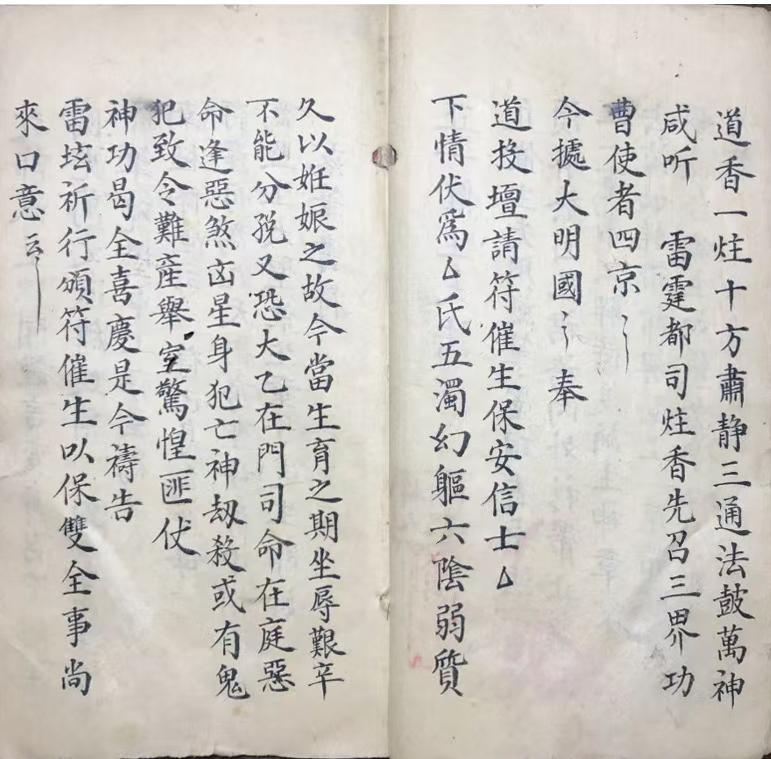 道香一炷十方肅静三通法鼓萬神
咸听　雷霆都司炷香先召三界功
曹使者四京〻
今據大明國〻奉
道投壇請符催生保安信士厶
下情伏爲厶氏五濁幻軀六陰弱質
久以妊娠之故今當生育之期坐辱艱辛
不能分娩又恐大乙在門司命在庭惡
命逢惡煞凶星身犯亡神刼殺或有鬼
犯致令難產舉室驚惶匪伏
神功曷全喜慶是今禱告
雷坛祈行頒符催生以保雙全事尚
來口意云〻